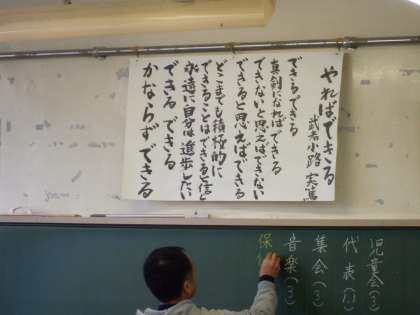 やればできる
武者小路 実篤
できる できる
真剣になれば できる
できないと思えばできない
できると思えば できる
どこまでも積極的に
できることはできると信じ
永遠に自分は進歩したい
できる できる
かならず できる
児童会(
代表(
集会(
音楽(
保